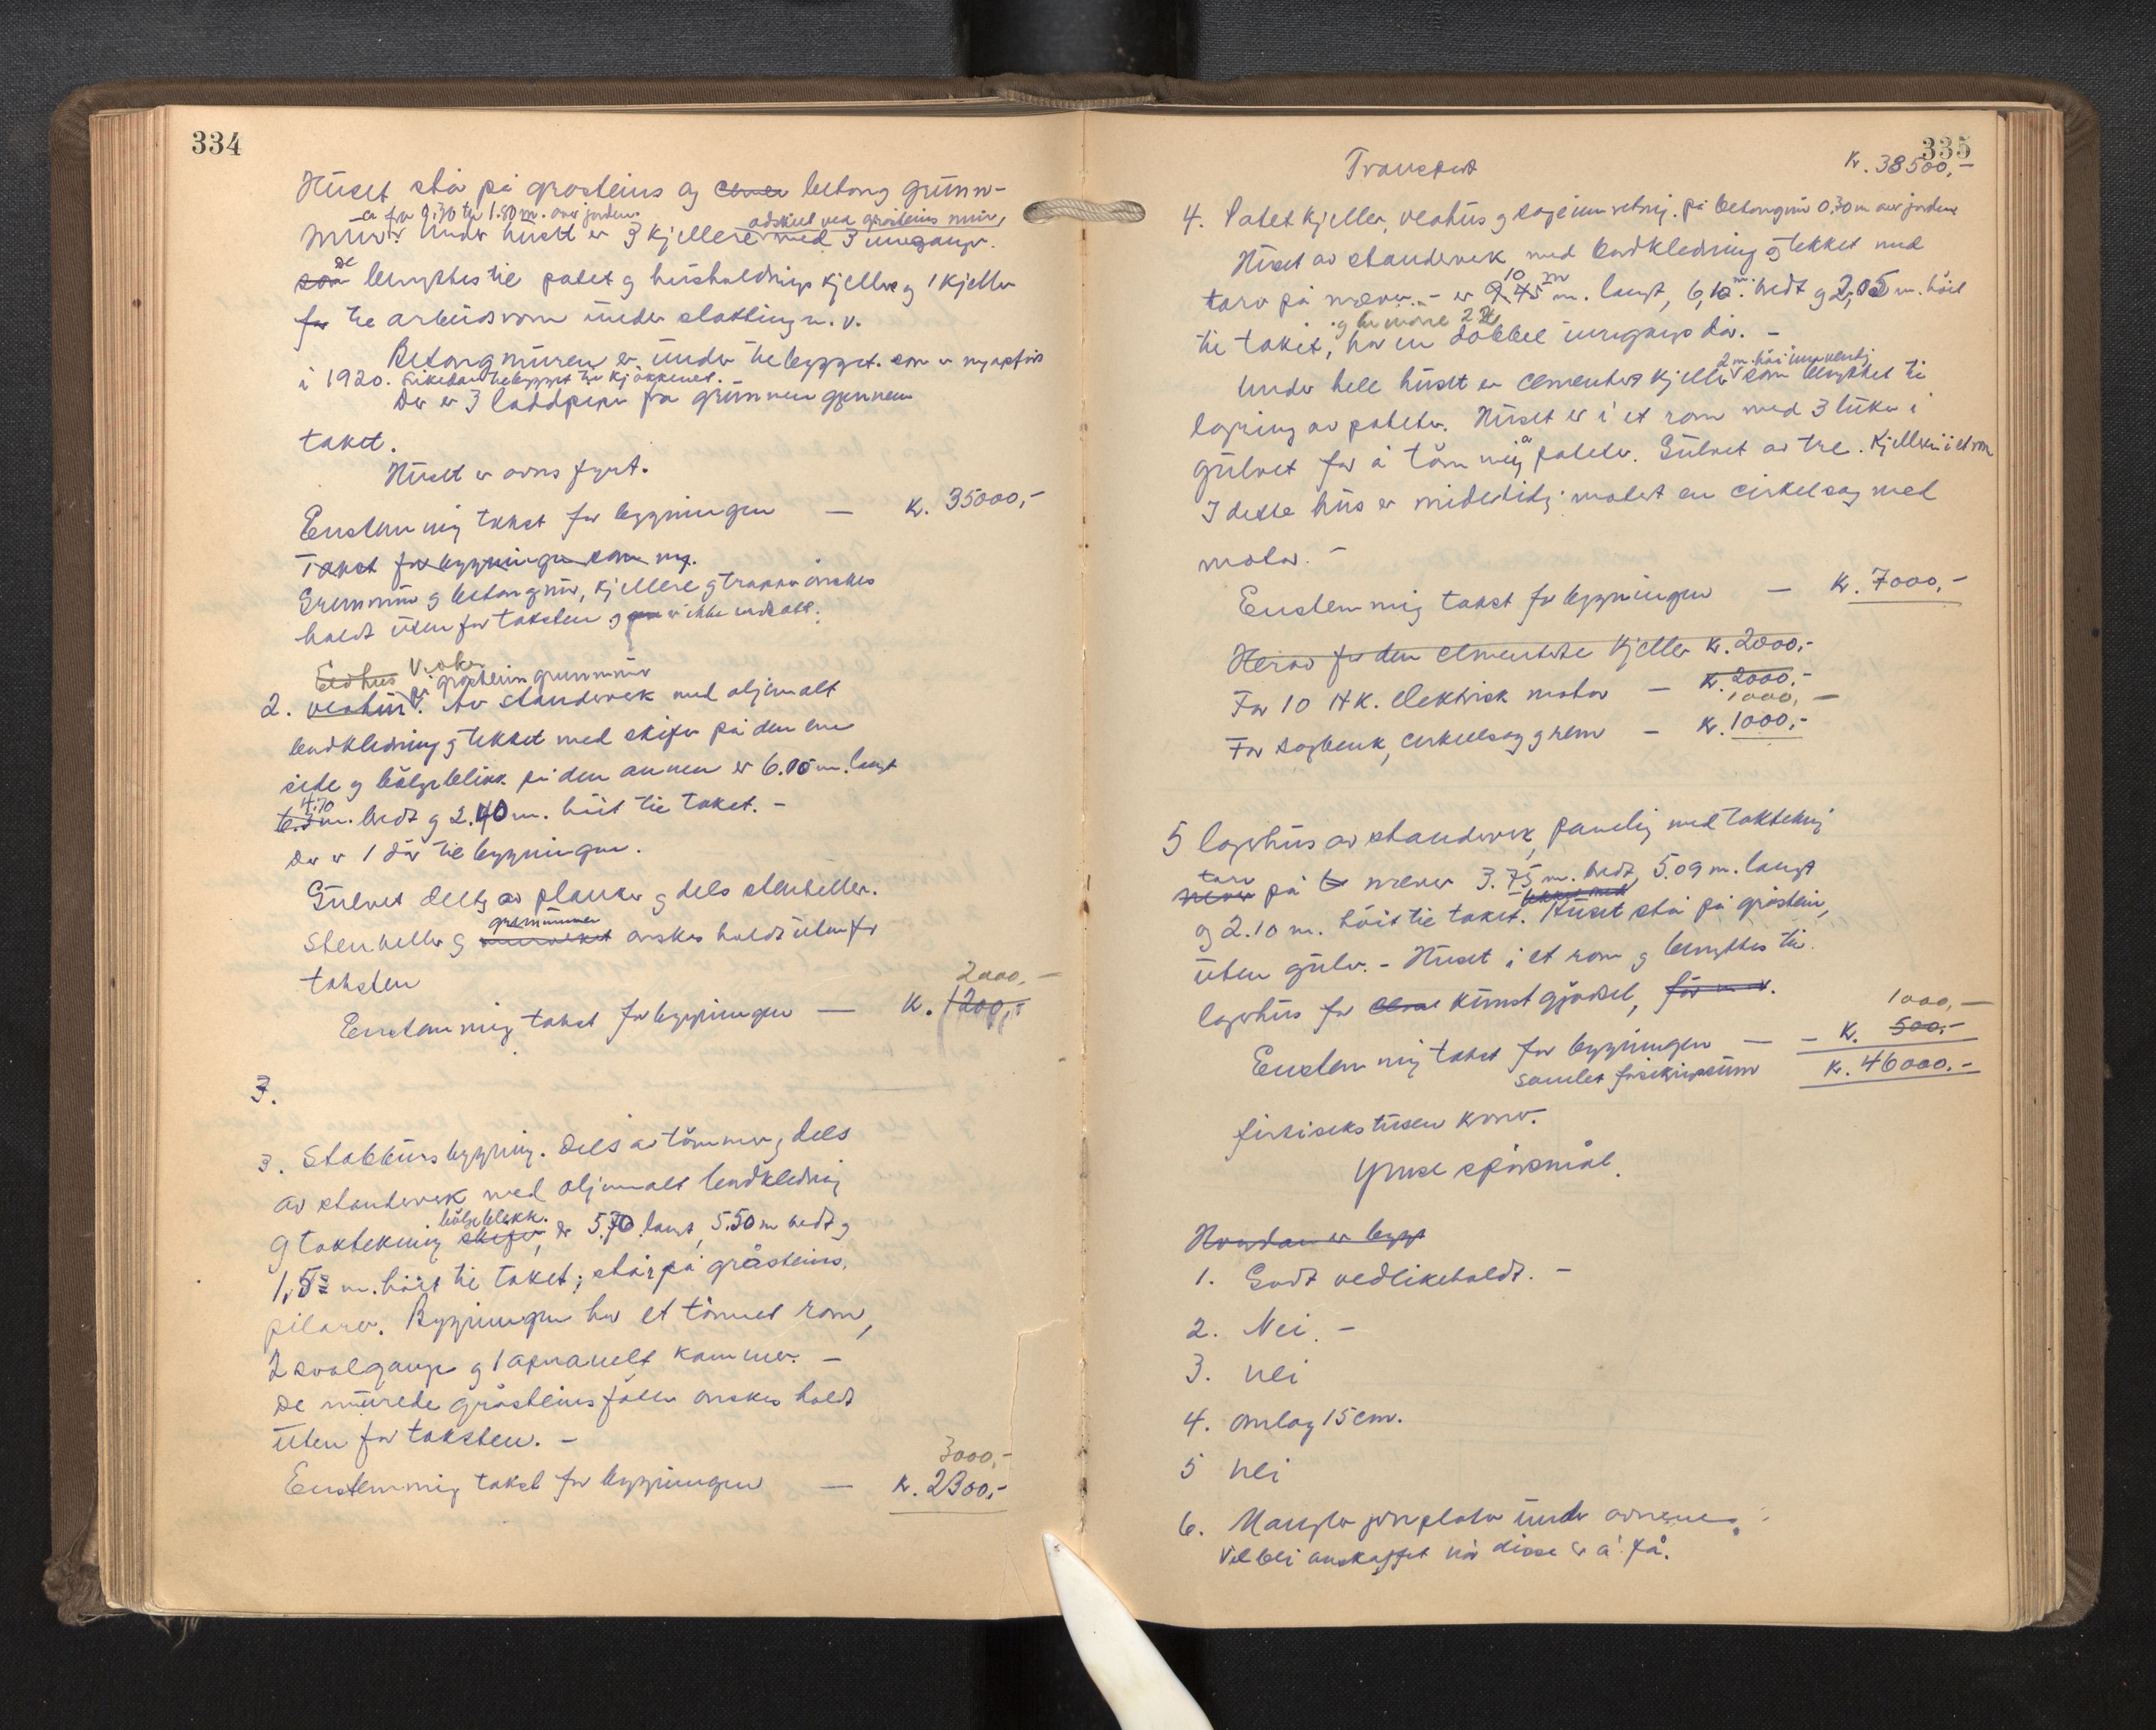 334
Huset står på gråsteins og betong grunn-
ca fra 0.30 til 1.80 m. over jorden.
adskilt ved gråsteins mur,
mur. Under huset er 3 kjellere med 3 innganger.
de
som benyttes til potet og husholdnings kjellere og 1 kjeller
for til arbeidsrom under slakting m. v.
Betongmuren er under tilbygget som er nyopført
i 1920. Likedan tilbygget til kjøkkenet.
Der er 3 loddpiper fra grunnen gjennem
taket.
Huset er ovns fyrt.
Enstemmig takst for bygningen — Kr. 35000,-
Takst for bygningen som ny.
Grunnmur og betongmur, kjellere og trapper ønskes
holdt utenfor taksten og er ikke indtatt.
Eldhus V. oker
på gråsteins grunnmur
2. vedhus. Av standerverk med oljemalt
bordkledning og tekket med skifer på den ene
side og bølgeblikk på den annen er 6.05 m. langt
4.70
6.3 m. bredt og 2.40 m. höit til taket. -
Der er 1 dör til bygningen.
Gulvet dels av planker og dels stenheller.
grunnmuren
Stenheller og murverket ønskes holdt utenfor
taksten
2000,-
Enstemmig takst for bygningen — Kr. 1200,-
3.
3. Stabbursbygning. Dels av tömmer, dels
av standerverk med oljemalt bordkledning
bölgeblekk.
og taktekning skifer, er 5.70 langt, 5.50 m bredt og
1,5 m. höit til taket; står på gråsteins,
pilarer. Bygningen har et tömret rom,
2 svalganger og 1 oppanelt kammer. -
De murede gråsteinspilarer ønskes holdt
utenfor taksten. -
3000,-
Enstemmig takst for bygningen — Kr. 2300,-
335
Transport Kr. 38500,-
4. Potet kjeller, vedhus og sageinnretning. på betongmur 0,30 m over jorden
Huset av standerverk med bordkledning og tekket med
10 m
torv på never. - er 9.45 m. langt, 6,10 m. bredt og 2,05 m. höit
til taket, har en dobbel inngangs dör. -
2 m. höi innvendig
Under hele huset er cementert kjeller som benyttes til
lagring av poteter. Huset er i et rom med 3 luker i
gulvet for å tömme i poteter. Gulvet av tre. Kjelleren i et rom
I dette hus er midlertidig montert en cirkelsag med
motor. -
Enstemmig takst for bygningen — Kr. 7000,-
Herav for den cementerte kjeller Kr. 2000,-
For 10 HK. elektrisk motor — Kr. 2000,-
1000,-
For sagbenk, cirkelsag og rem — Kr. 1000,-
5 Lagerhus av standerverk, paneling med taktekning
torv
never på never 3.75 m. bredt, 5.09 m. langt
tekket med
og 2.10 m. höit til taket. Huset står på gråstein,
uten gulv. - Huset i et rom og benyttes til
lagerhus for kunstgjödsel, för m. v.
1000,-
Enstemmig takst for bygningen — Kr. 500,-
Samlet forsikringssum Kr. 46000.-
førtiseks tusen kroner.
Ymse spörsmål.
Hvordan er bygt
1. Godt vedlikeholdt. -
2. Nei. -
3. nei
4. omlag 15 cm.
5 nei
6. Mangler jernplater under ovnene.
Vil bli anskaffet når disse er å få.